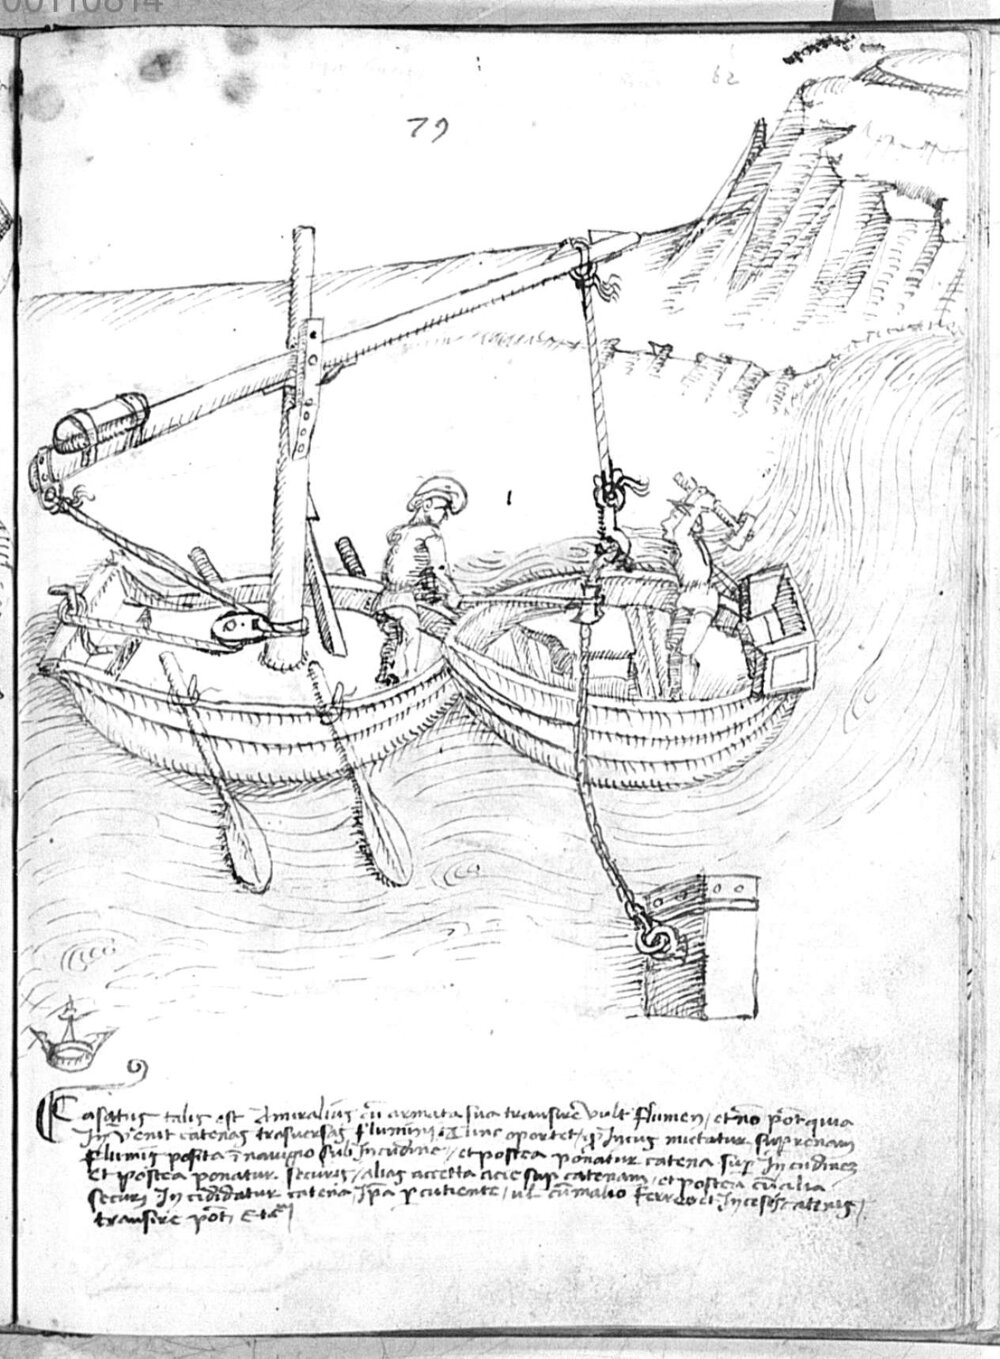 00110814
62
79
Casatus talis est Amiralius cū armata sua transire vult flumen / et nō pōt quia
In venit catenas trasuersas fluminij Tunc oportet / qȝ Incus mictatur suprenam
flumis posita ī navigio sub Incudine / et postea ponatur catena sup Incudinez
Et postea ponatur securis / alias accetta acie sup catenam / et postea cū alia
securi Incididatur catena Ipa pcutiente / ul cū malio ferreo et Incesis catenis /
transire pōt